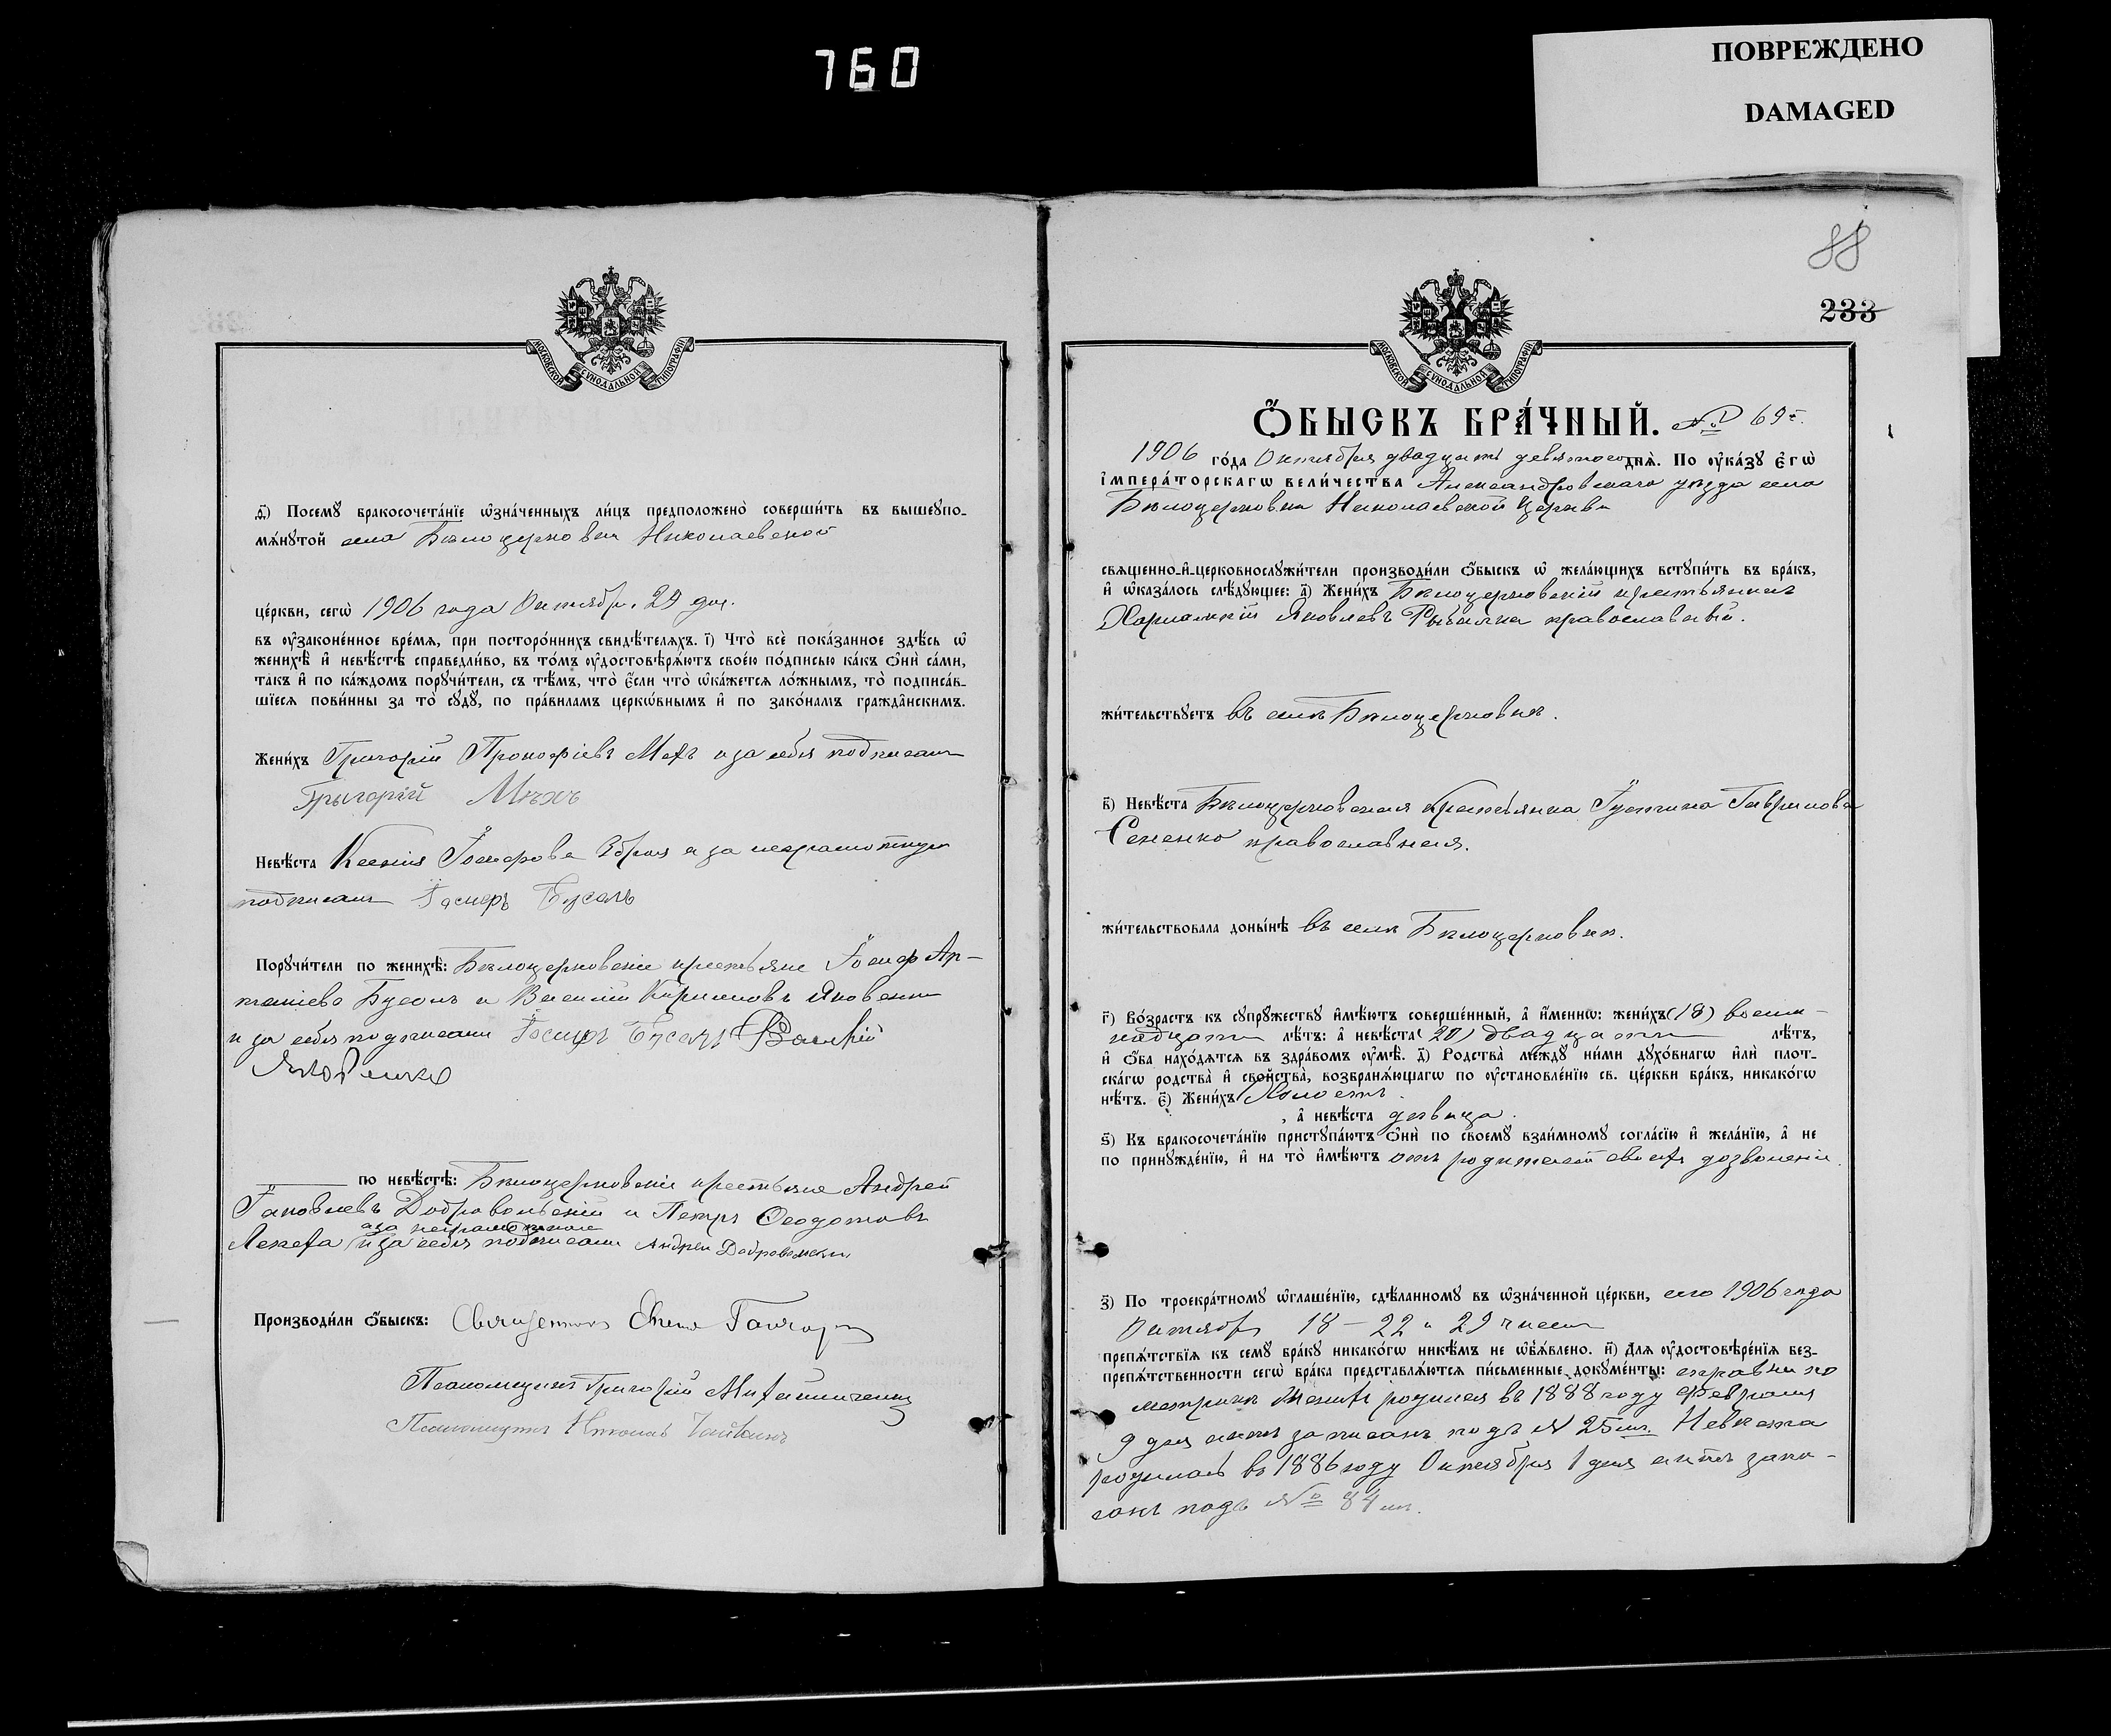 760
ПОВРЕЖДЕНО
DAMAGED
МОСКОВСКОЙ СѴНОДАЛЬНОЙ ТИПОГРАФІИ
ѳ҃) Посемꙋ бракосочета́нїе ѡ҆зна́ченныхъ ли́цъ предположено̀ соверши́ть въ вышеꙋпо-
мѧ́нꙋтой села Бѣлоцерковки Николаевской
це́ркви, сегѡ̀ 1906 года Октябр. 29 дня.
въ ᲂу҆законе́нное вре́мѧ, при посторо́ннихъ свидѣ́телѧхъ. і҃) Что̀ всѐ пока́занное здѣ́сь ѡ҆
женихѣ̀ и҆ невѣ́стѣ справедли́во, въ то́мъ ᲂу҆достовѣрѧ́ютъ свое́ю по́дписью ка́къ ѻ҆нѝ са́ми,
та́къ и҆ по ка́ждомъ порꙋчи́тели, съ тѣ́мъ, что̀ є҆́сли что̀ ѡ҆ка́жетсѧ ло́жнымъ, то̀ подписа́в-
шїесѧ пови́нны за то̀ сꙋдꙋ̀, по пра́виламъ церкѡ́внымъ и҆ по зако́намъ гражда̑нскимъ.
Жени́хъ Григорій Прокофіевъ Мѣхъ и за себя подписалъ
Грыгорій Мѣхъ
Невѣ́ста Ксенія Іосифова и за неграмотную
подписалъ Іосифъ Бусолъ
Порꙋчи́тели по женихѣ̀: Бѣлоцерковскіе крестьяне Іосиф Ар-
Бусолъ и Василій Кириловъ Яковенко
и за себя подписали Іосифъ Бусолъ Василій
Яковенко
по невѣ́стѣ: Бѣлоцерковскіе крестьяне Андрей
Іаковлевъ Добровольскій и Петръ Ѳеодотовъ
а за неграмотного
Лепеха и за себя подписалъ Андрей Добровольски
Производи́ли ѻ҆́быскъ: Священникъ Гончаръ
Псаломщикъ Григорій Михайличенко
Псаломщикъ Николай
88
233
МОСКОВСКОЙ СѴНОДАЛЬНОЙ ТИПОГРАФІИ
Ѻ҆́БЫСКЪ БРА́ЧНЫЙ. № 69й.
1906 го́да Октября двадцать девятого днѧ̀. По ᲂу҆ка́зꙋ Є҆гѡ̀
І҆мпера́торскагѡ вели́чества Александровскаго уѣзда села
Бѣлоцерковки Николаевской Церкви
свѧще́нно-и҆-церковнослꙋжи́тели производи́ли ѻ҆́быскъ ѡ҆ жела́ющихъ встꙋпи́ть въ бра́къ,
и҆ ѡ҆каза́лось слѣ́дꙋющее: а҃) Жени́хъ Бѣлоцерковскій крестьянинъ
Харлампій Яковлевъ Рыбалка православный.
жи́тельствꙋетъ въ селѣ Бѣлоцерковкѣ.
в҃) Невѣ́ста Бѣлоцерковская крестьянка Іустина Гаврилова
Сененко православная.
жи́тельствовала доны́нѣ въ селѣ Бѣлоцерковки.
г҃) Во́зрастъ къ сꙋпрꙋ́жествꙋ и҆мѣ́ютъ соверше́нный, а҆ и҆́меннѡ: жени́хъ (18) восем-
надцать лѣ́тъ: а҆ невѣ́ста (20) двадцать лѣ́тъ,
и҆ ѻ҆́ба нахо́дѧтсѧ въ здра́вомъ ᲂу҆мѣ̀. д҃) Родства̀ междꙋ̀ ни́ми дꙋхо́внагѡ и҆лѝ плот-
ска́гѡ родства̀ и҆ сво́йства̀, возбранѧ́ющагѡ по ᲂу҆становле́нїю св. це́ркви бра́къ, никако́гѡ
нѣ́тъ. є҃) Жени́хъ Холостъ.
, а҆ невѣ́ста дѣвица.
ѕ҃) Къ бракосочета́нїю пристꙋпа́ютъ ѻ҆нѝ по своемꙋ̀ взаи́мномꙋ согла́сїю и҆ жела́нїю, а҆ не
по принꙋжде́нїю, и҆ на то̀ и҆мѣ́ютъ отъ родителей своихъ дозволеніе.
з҃) По троекра́тномꙋ ѡ҆глаше́нїю, сдѣ́ланномꙋ въ ѡ҆зна́ченной це́ркви, сего 1906 года
Октября 18 – 22 и 29 чиселъ
препѧ́тствїѧ къ семꙋ̀ бра́кꙋ никако́гѡ никѣ́мъ не ѡ҆б̾ѧ́влено. и҃) Длѧ ᲂу҆достовѣре́нїѧ без-
препѧ́тственности сегѡ̀ бра́ка представлѧ́ютсѧ пи́сьменные докꙋме́нты: справки по
метрикѣ Женихъ родился въ 1888 году Февраля
9 дня актъ записанъ подъ № 25мъ. Невѣста
родилась въ 1886 году Октября 1 дня актъ запи-
санъ подъ № 84мъ.